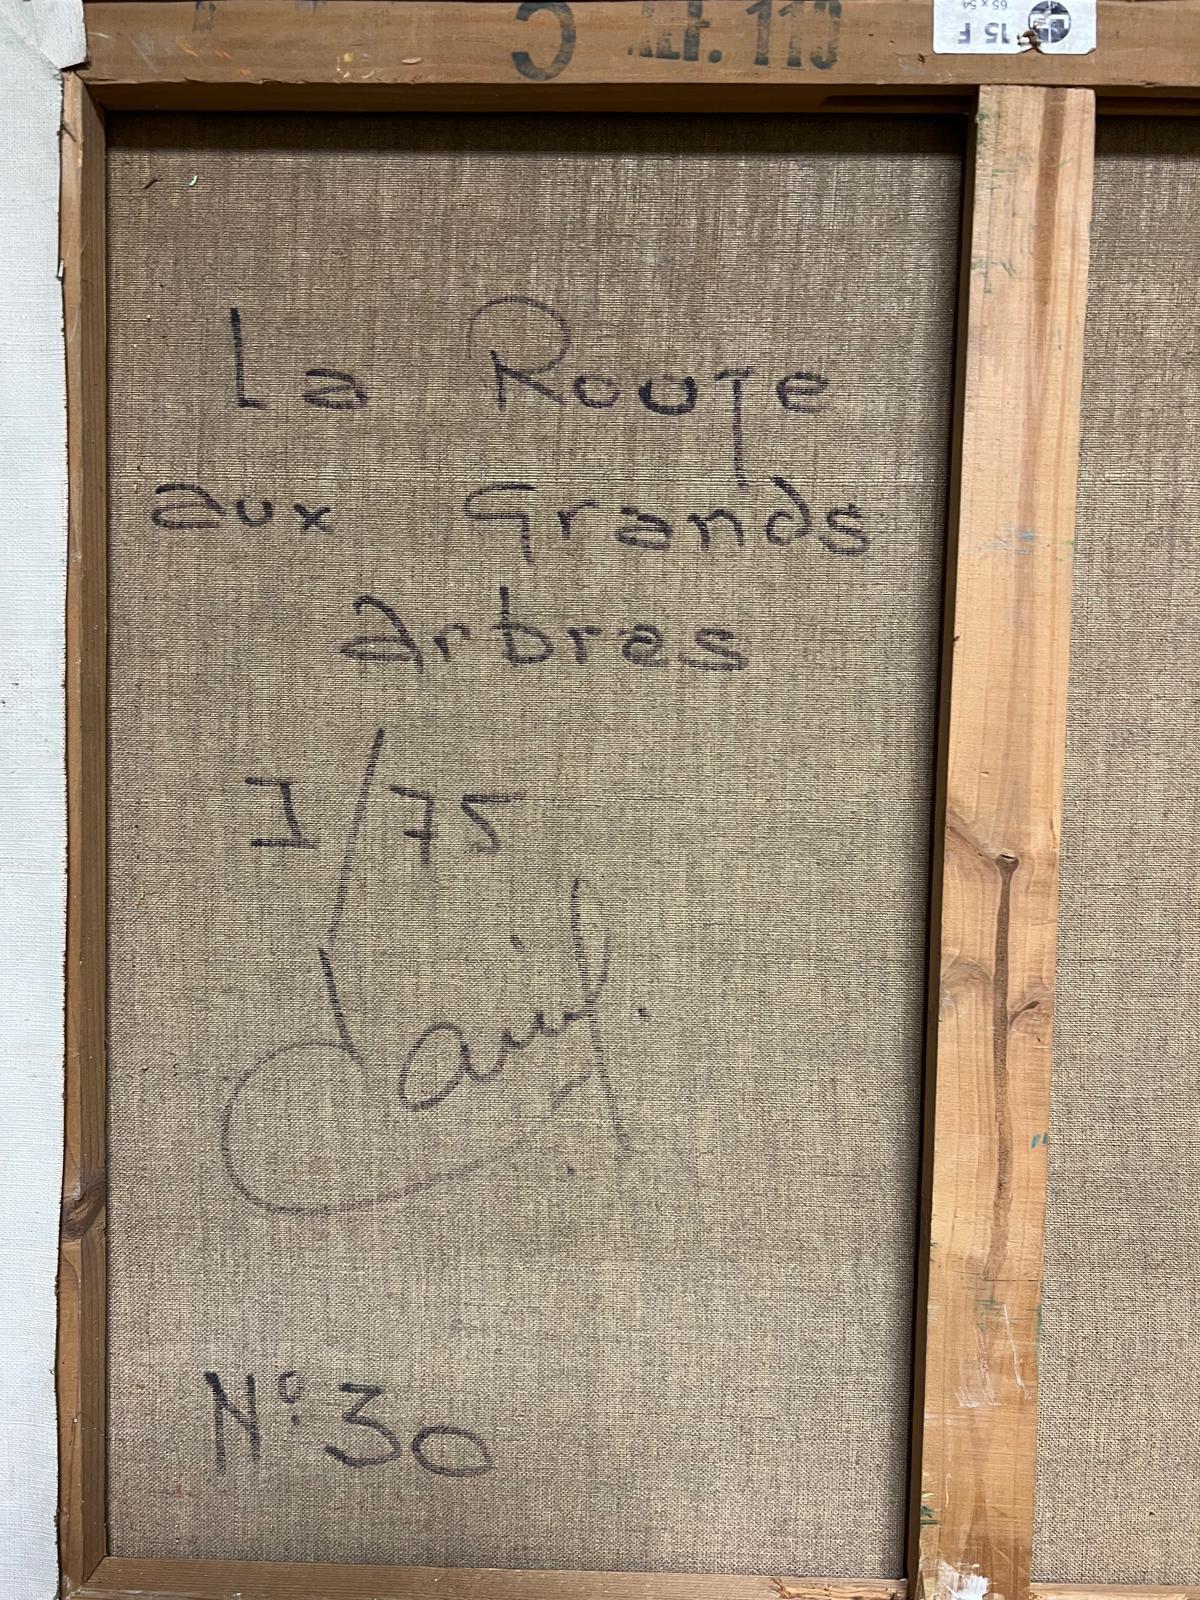 REF. 113
15 F
65 x 54
La Route
aux Grands
arbres
I/75
N° 30